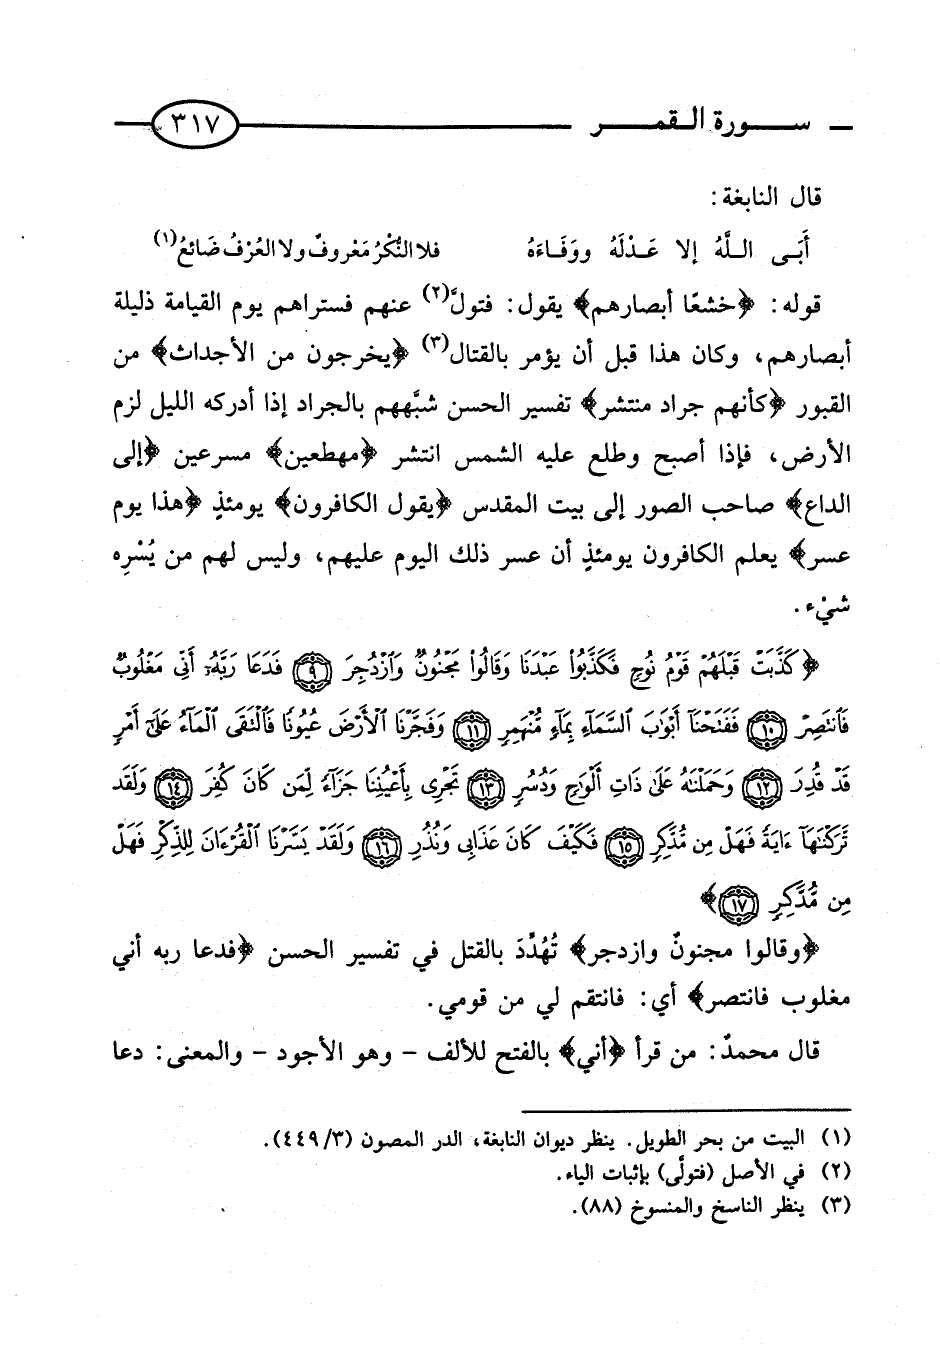 سورة القمر ٣١٧
قال النابغة:
أَبَى اللَّهُ إلا عَدْلَهُ ووَفَاءَهُ فلا النُّكْرُ مَعْروفٌ ولا العُرْفُ ضَائعُ(١)
قوله: ﴿خشعًا أبصارهم﴾ يقول: فتولَّ(٢) عنهم فستراهم يوم القيامة ذليلة
أبصارهم، وكان هذا قبل أن يؤمر بالقتال(٣) ﴿يخرجون من الأجداث﴾ من
القبور ﴿كأنهم جراد منتشر﴾ تفسير الحسن شبَّههم بالجراد إذا أدركه الليل لزم
الأرض، فإذا أصبح وطلع عليه الشمس انتشر ﴿مهطعين﴾ مسرعين ﴿إلى
الداع﴾ صاحب الصور إلى بيت المقدس ﴿يقول الكافرون﴾ يومئذٍ ﴿هذا يوم
عسر﴾ يعلم الكافرون يومئذٍ أن عسر ذلك اليوم عليهم، وليس لهم من يُسْرِه
شيْء.
﴿كَذَّبَتْ قَبْلَهُمْ قَوْمُ نُوحٍ فَكَذَّبُوا۟ عَبْدَنَا وَقَالُوا۟ مَجْنُونٌ وَٱزْدُجِرَ ٩ فَدَعَا رَبَّهُۥٓ أَنِّى مَغْلُوبٌ
فَٱنتَصِرْ ١٠ فَفَتَحْنَآ أَبْوَٰبَ ٱلسَّمَآءِ بِمَآءٍ مُّنْهَمِرٍ ١١ وَفَجَّرْنَا ٱلْأَرْضَ عُيُونًا فَٱلْتَقَى ٱلْمَآءُ عَلَىٰٓ أَمْرٍ
قَدْ قُدِرَ ١٢ وَحَمَلْنَٰهُ عَلَىٰ ذَاتِ أَلْوَٰحٍ وَدُسُرٍ ١٣ تَجْرِى بِأَعْيُنِنَا جَزَآءً لِّمَن كَانَ كُفِرَ ١٤ وَلَقَد
تَّرَكْنَٰهَآ ءَايَةً فَهَلْ مِن مُّدَّكِرٍ ١٥ فَكَيْفَ كَانَ عَذَابِى وَنُذُرِ ١٦ وَلَقَدْ يَسَّرْنَا ٱلْقُرْءَانَ لِلذِّكْرِ فَهَلْ
مِن مُّدَّكِرٍ ١٧﴾
﴿وقالوا مجنونٌ وازدجر﴾ تُهُدِّدَ بالقتل في تفسير الحسن ﴿فدعا ربه أني
مغلوب فانتصر﴾ أي: فانتقم لي من قومي.
قال محمدٌ: من قرأ ﴿أني﴾ بالفتح للألف - وهو الأجود - والمعنى: دعا
(١) البيت من بحر الطويل. ينظر ديوان النابغة، الدر المصون (٤٤٩/٣).
(٢) في الأصل (فتولَّى) بإثبات الياء.
(٣) ينظر الناسخ والمنسوخ (٨٨).